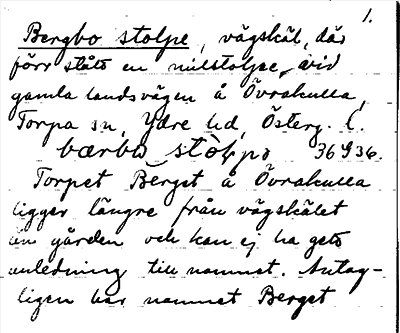 1.
Bergbo stolpe, vägskäl, där
förr stått en milstolpe, vid
gamla landsvägen å Övrakulla,
Torpa sn, Ydre hd, Österg. l.
bærbo stòlpə 36 9 36.
Torpet Berget å Övrakulla
ligger längre från vägskälet
än gården och kan ej ha gett
anledning till namnet. Antag-
ligen har namnet Berget